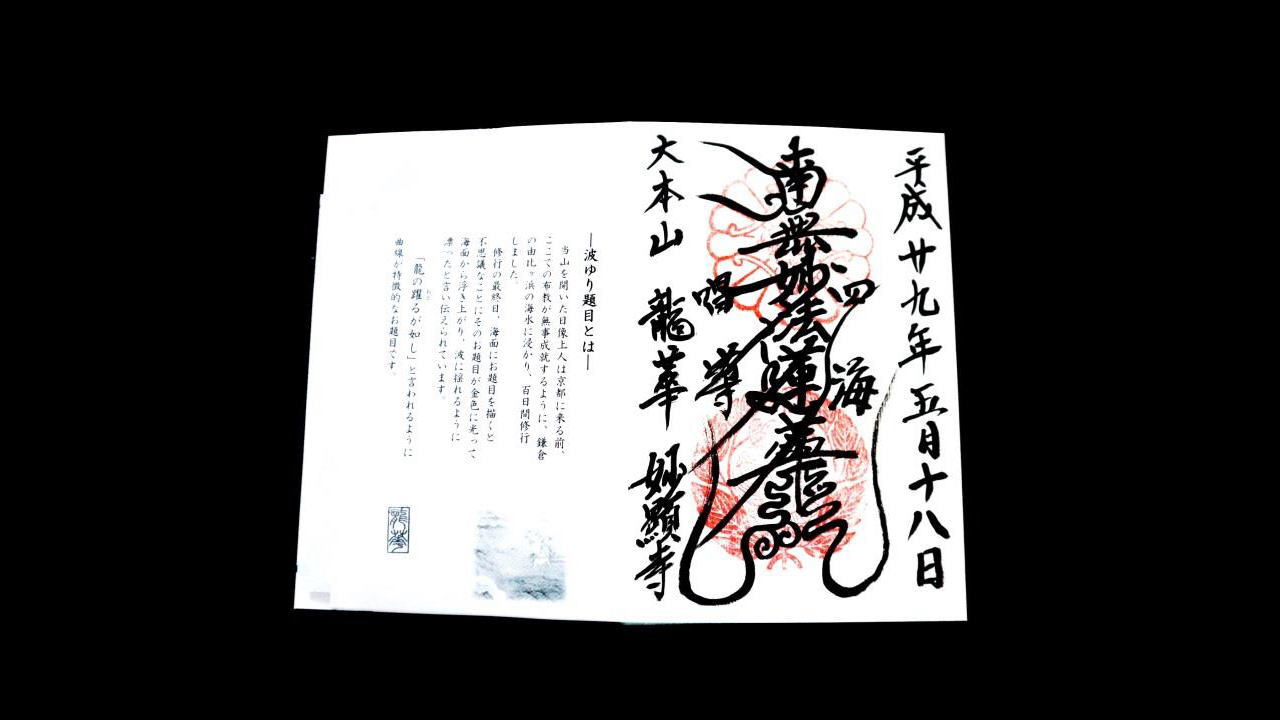 平成廿九年五月十八日
四海
南無妙法蓮華経
唱導
大本山 龍華 妙顕寺
―波ゆり題目とは―
当山を開いた日像上人は京都に来る前、
ここでの布教が無事成就するように、鎌倉
の由比ヶ浜の海水に浸かり、百日間修行
しました。
修行の最終日、海面にお題目を描くと
不思議なことにそのお題目が金色に光って
海面から浮き上がり、波に揺れるように
漂ったと言い伝えられています。
「龍の躍るが如し」と言われるように
曲線が特徴的なお題目です。
龍華